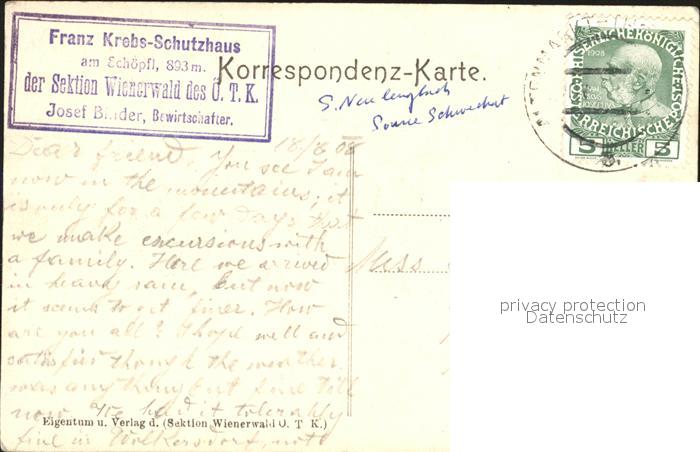 Franz Krebs-Schutzhaus
am Schöpfl, 893 m.
der Sektion Wienerwald des Ö. T. K.
Josef Binder, Bewirtschafter.
Korrespondenz-Karte.
S. Neulengbach
Source Schwechat
1908
5 HELLER 5
18/8 08
Dear friend, You see I am
now in the mountains; it
is only for a few days that
we make excursions with
a family. Here we arrived
in heavy rain, but now
it seems to get finer. How
are you all? I hope well and
though the weather
was anything but fine till
now. We had it tolerably
fine in Wolkersdorf, not
Miss
Eigentum u. Verlag d. (Sektion Wienerwald Ö. T. K.)
privacy protection
Datenschutz